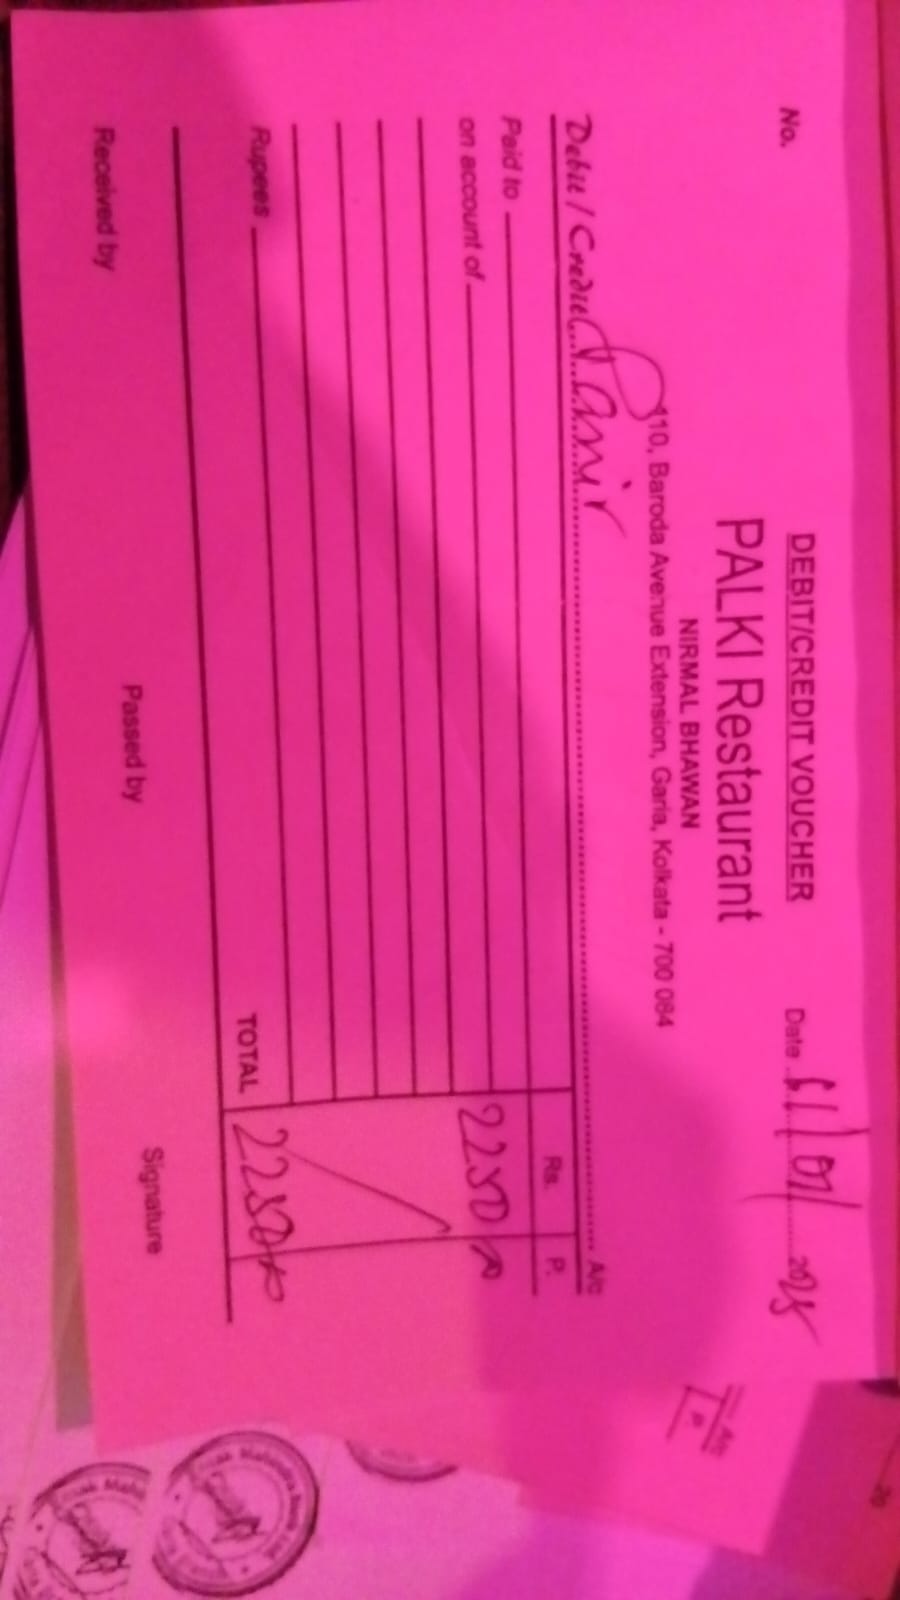 DEBIT/CREDIT VOUCHER
No.
Date 6/01/2025
PALKI Restaurant
NIRMAL BHAWAN
110, Baroda Avenue Extension, Garia, Kolkata - 700 084
Debit / Credit Samir A/c
Rs. P.
Paid to
on account of 2250
Rupees TOTAL 2250
Received by Passed by Signature